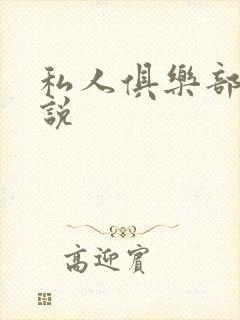 私人俱樂部
說
高迎賓